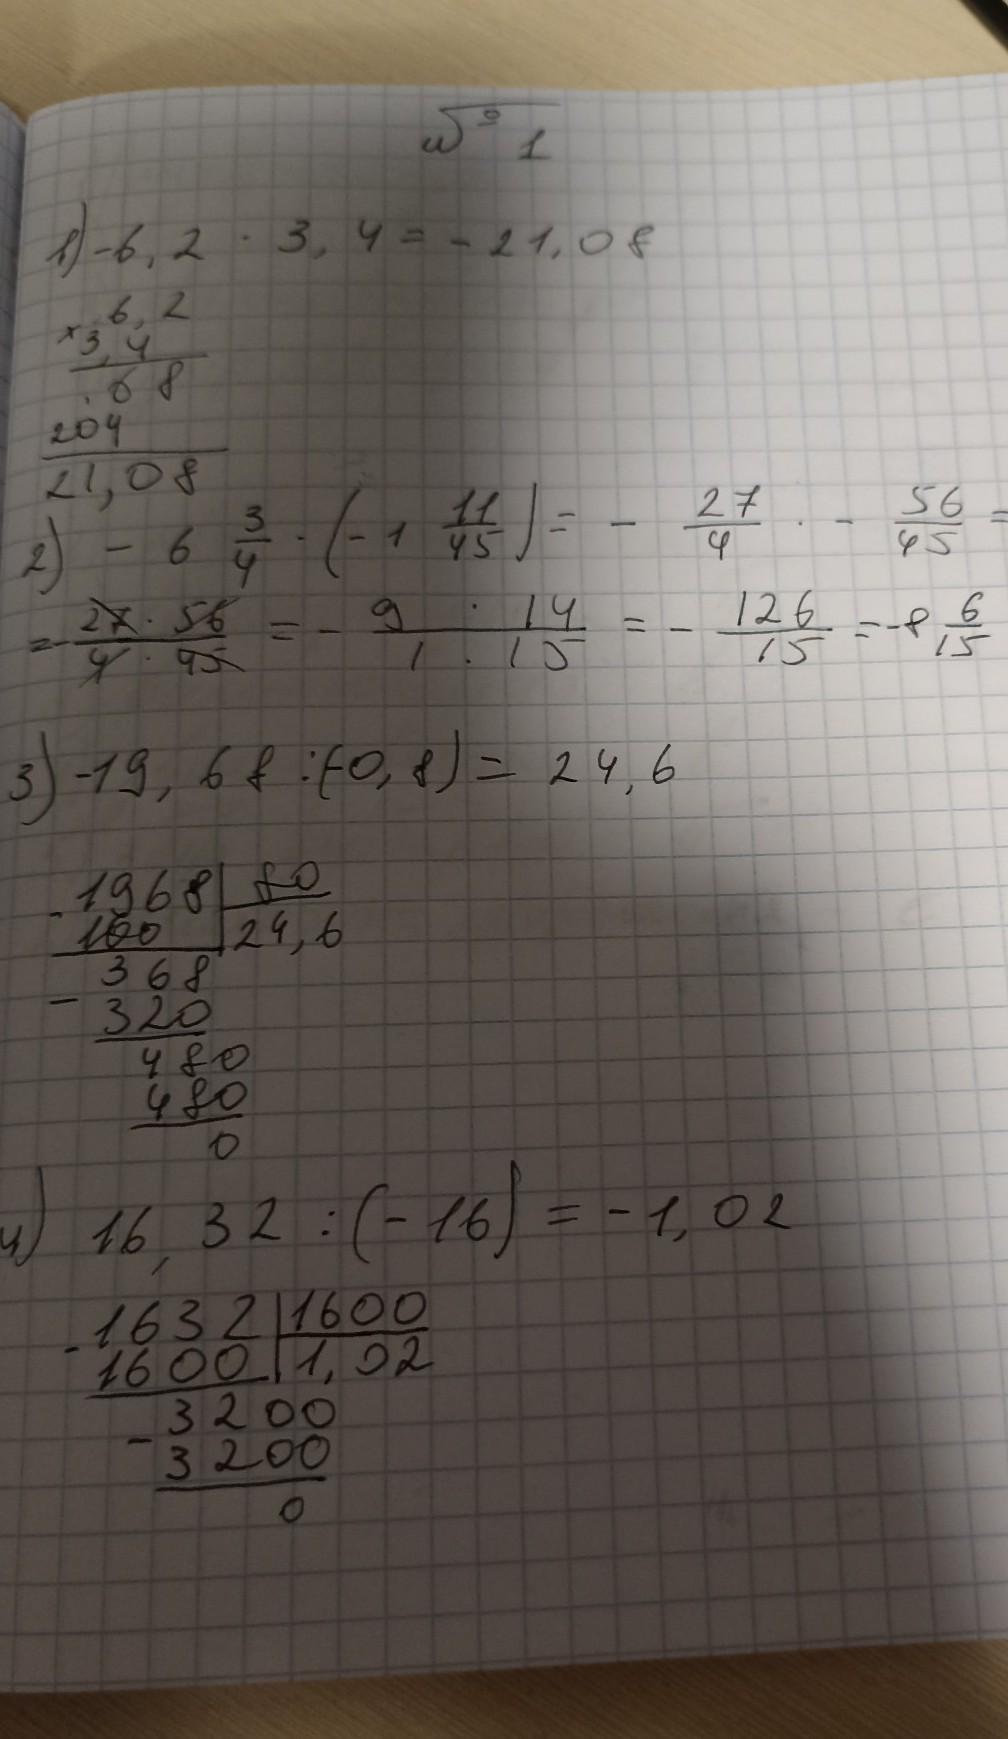 № 1
1) -6,2 · 3,4 = -21,08
× 6,2
3,4
68
204
21,08
2) - 6 3/4 · (-1 11/45) = - 27/4 · - 56/45 =
= - 27 · 56 / 4 · 45 = - 9 · 14 / 1 · 15 = - 126/15 = -8 6/15
3) -19,68 : (-0,8) = 24,6
- 1968 | 80
160 | 24,6
- 368
320
480
480
0
4) 16,32 : (-16) = -1,02
- 1632 | 1600
1600 | 1,02
- 3200
3200
0